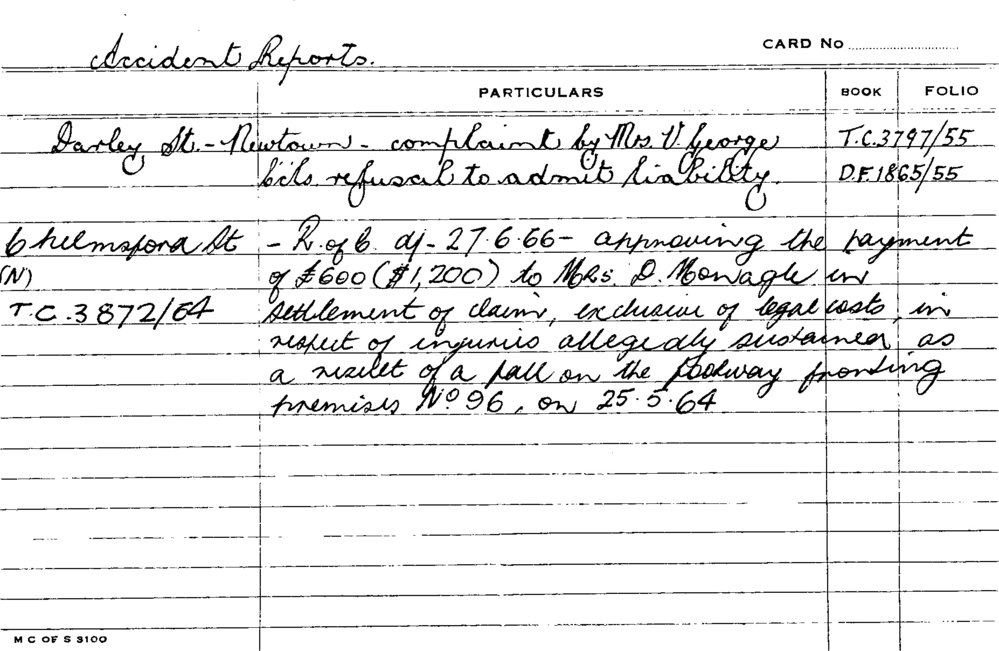 Accident Reports.
CARD No
PARTICULARS BOOK FOLIO
Darley St. - Newtown - complaint by Mrs. V. George T.C.3797/55
C'cils refusal to admit liability. D.F.1865/55
Chelmsford St - R. of C. d/- 27.6.66 - approving the payment
(N) of £600 ($1,200) to Mrs. D. Monagle in
T.C.3872/64 settlement of claim, exclusive of legal costs, in
respect of injuries allegedly sustained as
a result of a fall on the footway fronting
premises No 96, on 25.5.64
M C OF S 3100